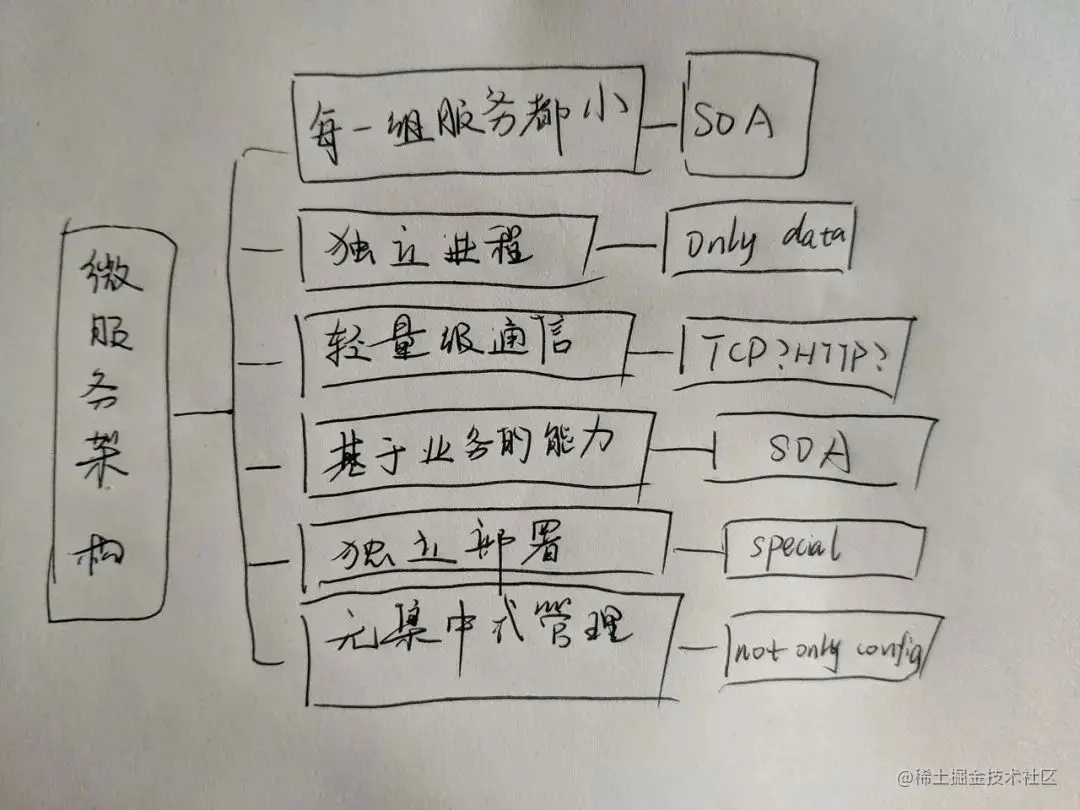 微服务架构
每一组服务都小
SOA
独立进程
only data
轻量级通信
TCP?HTTP?
基于业务的能力
SOA
独立部署
special
无集中式管理
not only config
@稀土掘金技术社区